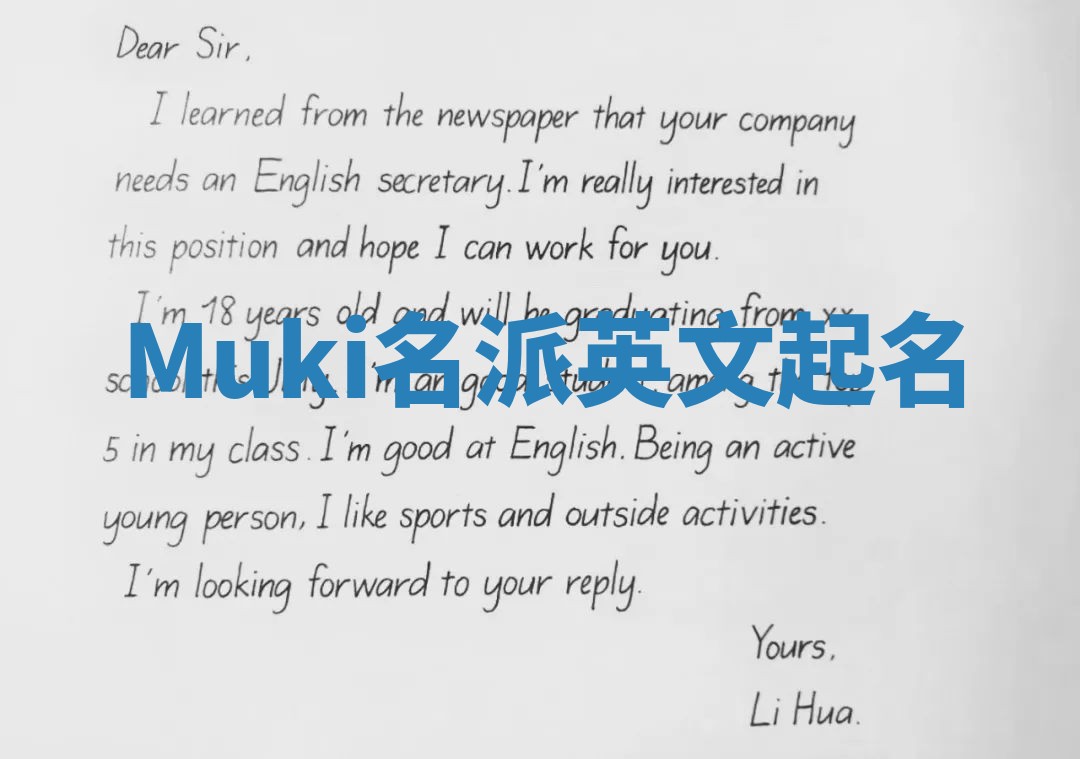 Dear Sir,
I learned from the newspaper that your company
needs an English secretary. I'm really interested in
this position and hope I can work for you.
I'm 18 years old and will be graduating from xx
Muki名派英文起名
school this July. I'm an good student, among the top
5 in my class. I'm good at English. Being an active
young person, I like sports and outside activities.
I'm looking forward to your reply.
Yours,
Li Hua.